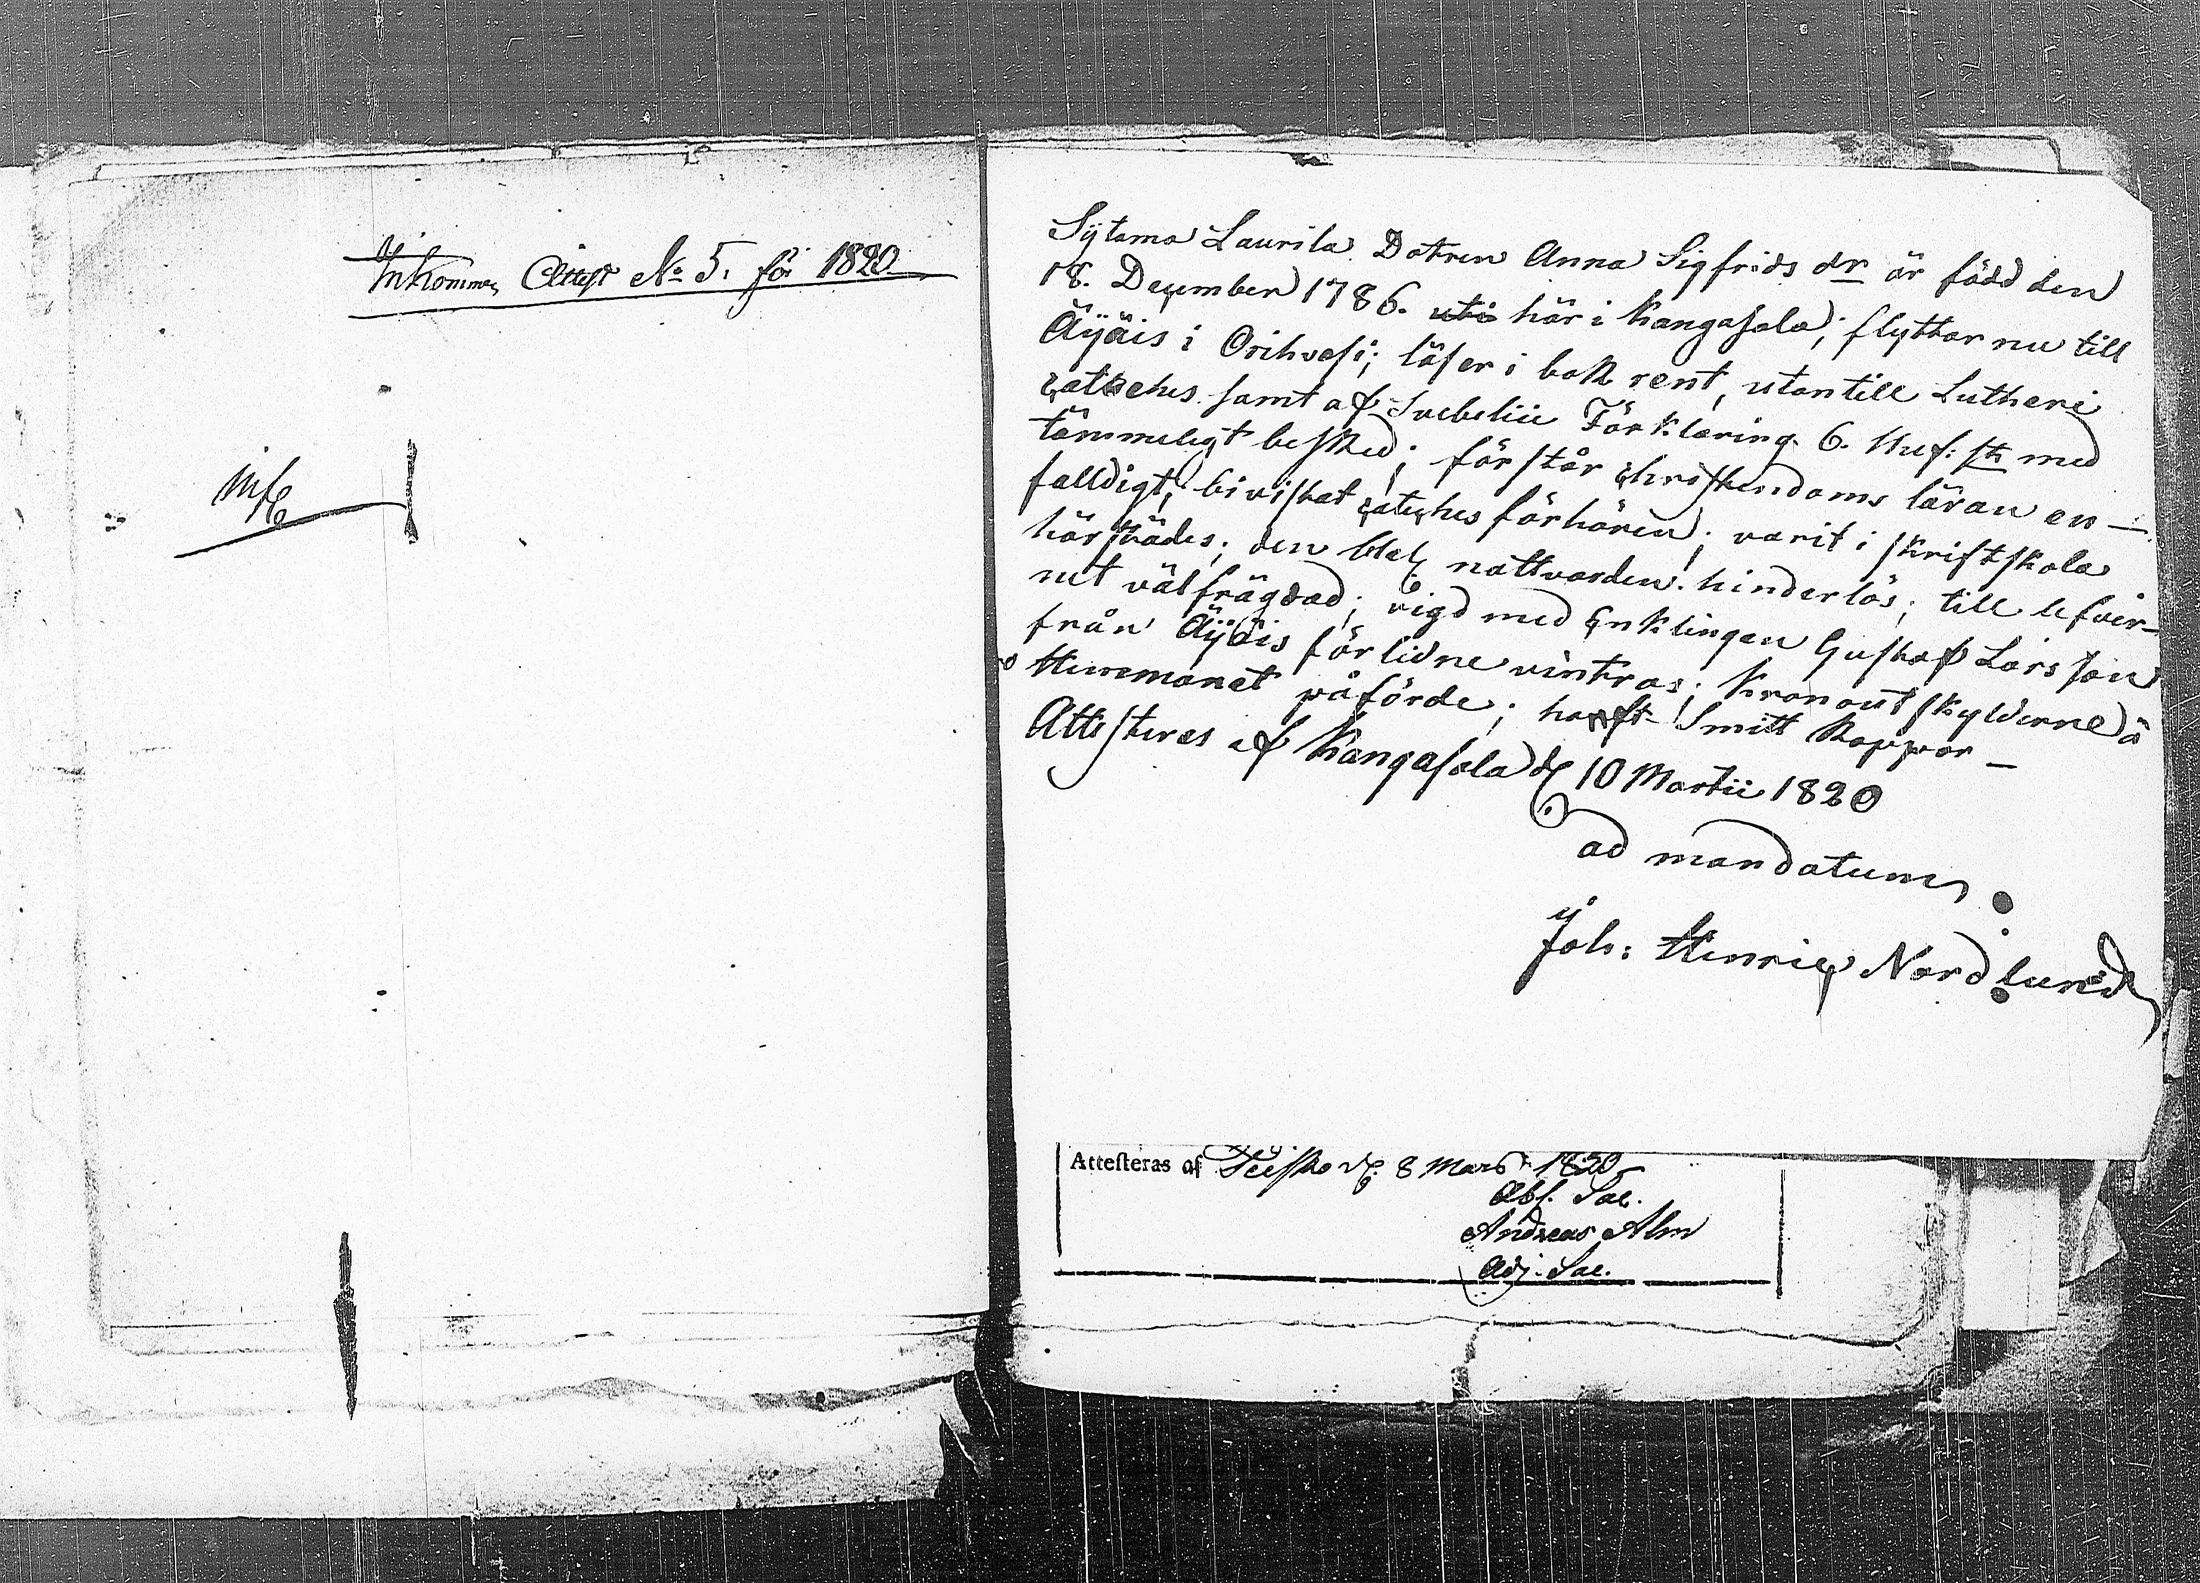 Inkommen Attest No 5. för 1820.
Sÿtama Laurila Dotren Anna Sigfrids dr är född den
18. December 1786. uti här i Kangasala; flyttar nu till
Äÿäis i Orihvesi; läser i bok rent, utantill Lutheri
cateches samt af Svebelii Förklaring 6. Huf: st: med
tämmeligt besked; förstår christendoms läran en-
falldigt; bivistat cateches förhören; varit i skriftskola
härstädes; den Hel. nattvarden hinderlös; till lefver-
net välfrägdad; vigd med Enklingen Gustaf Larsson
från Äÿäis förlidne vintras; Kronoutskylderne å
Hemmanet påförde; haft Smitt Koppor_
Attesteras af Kangasala d. 10 Martii 1820
ad mandatum
Joh: Henric Nordlund
Attesteras af Teisko d. 8 Mars 1820
Abs. Sac.
Andreas Alm
Adj. Sac.